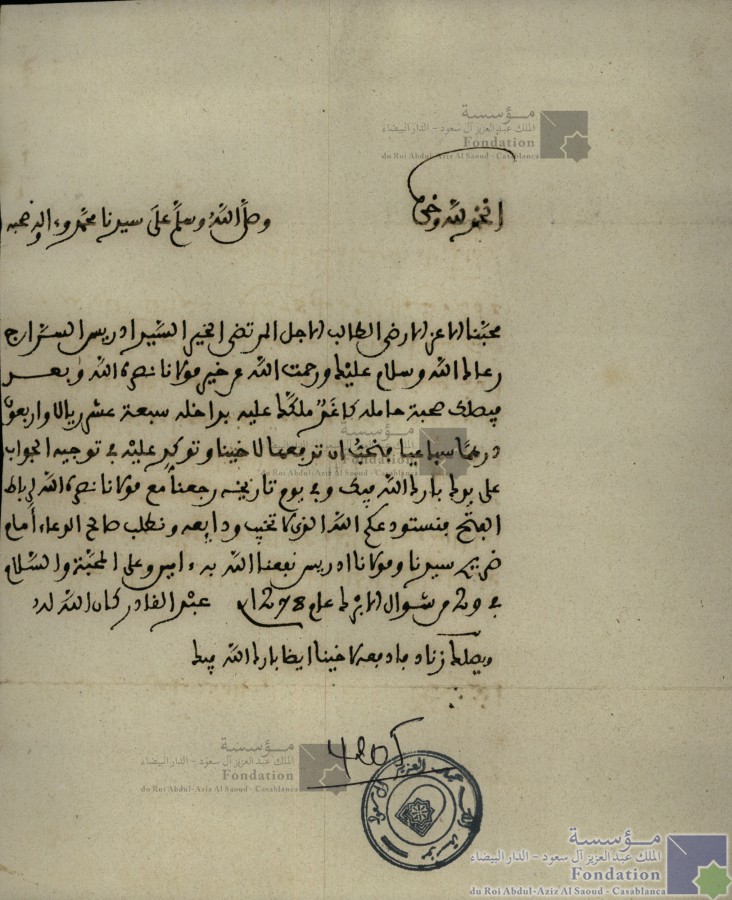 مؤسسة
الملك عبد العزيز آل سعود - الدار البيضاء
Fondation
du Roi Abdul-Aziz Al Saoud - Casablanca
الحمد لله وحده
وصلى الله وسلم على سيدنا محمد وءاله وصحبه
محبنا الاعز الارضى الطالب الاجل المرتضى الخير السيد ادريس السراج
رعاك الله وسلام عليك ورحمت الله عن خير مولانا نصره الله وبعد
فيصلك صحبة حامله كاغد ملكك عليه بداخله سبعة عشر ريالا واربعون
درهما سباعيا فنحب ان تدفعها لاخينا وتوكد عليه في توجيه الجواب
على يدك بارك الله فيك وفي يوم تاريخه رجعنا مع مولانا نصره الله لرباط
الفتح فنستودعكم الله الذي لا تخيب ودايعه ونطلب صالح الدعاء أمام
ضريح سيدنا ومولانا ادريس نفعنا الله به ءامين وعلى المحبة والسلام
في 29 من شوال الابرك عام 1278 عبد القادر كان الله له
ويصلك زناد فادفعه لاخينا ايضا بارك الله فيك
مؤسسة
الملك عبد العزيز آل سعود - الدار البيضاء
Fondation
du Roi Abdul-Aziz Al Saoud - Casablanca
مؤسسة الملك عبد العزيز آل سعود
مؤسسة
الملك عبد العزيز آل سعود - الدار البيضاء
Fondation
du Roi Abdul-Aziz Al Saoud - Casablanca